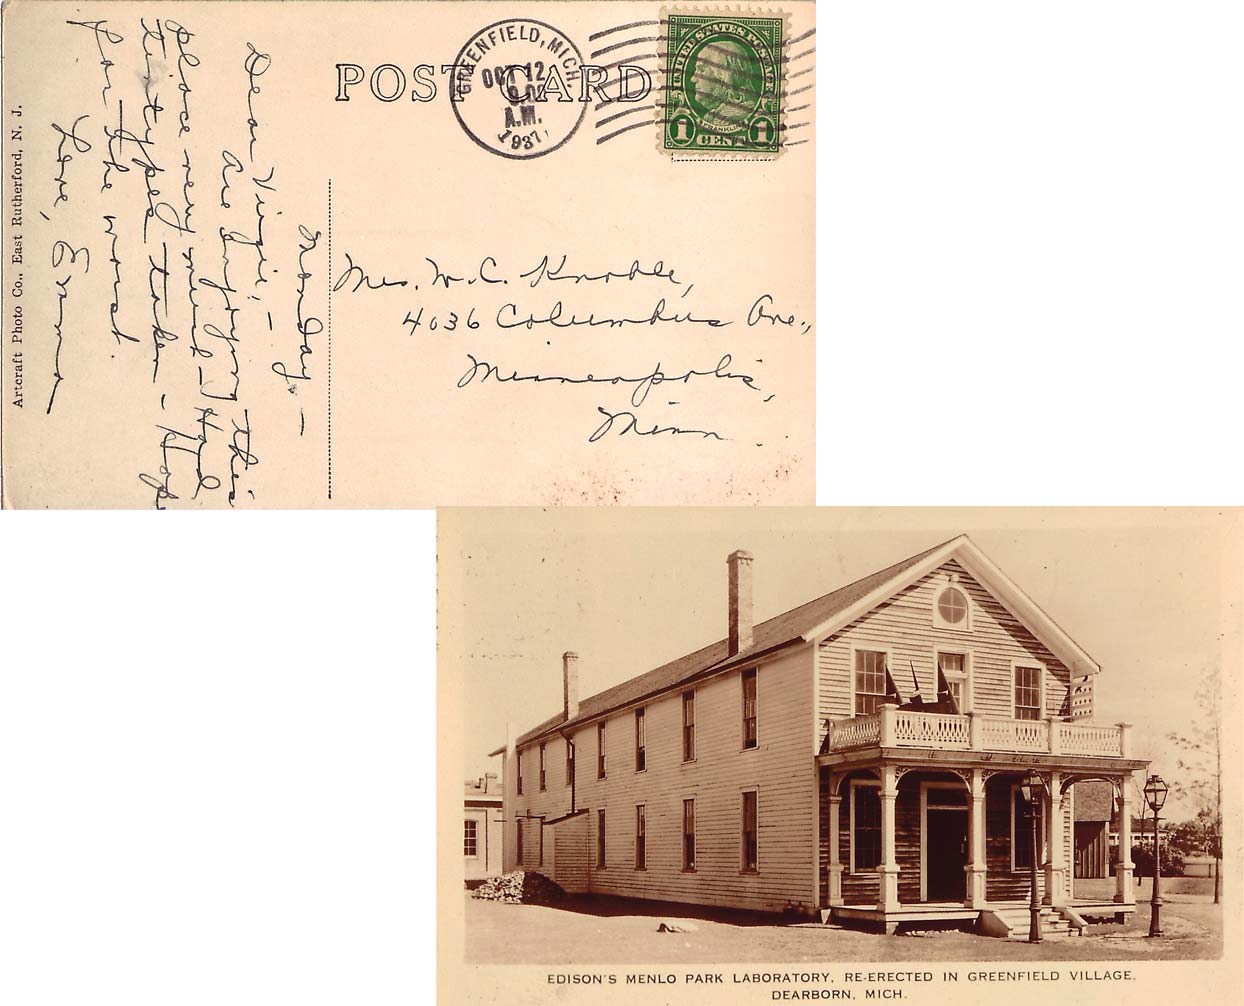 POST CARD
GREENFIELD, MICH.
OCT 12
9.00
A.M.
1937
UNITED STATES POSTAGE
FRANKLIN
1 CENT 1
Monday. —
Dear Virgie, —
Are enjoying this
place very much — Had
tintypes taken — Hope
for the worst.
Love, Emma
Mrs. W. C. Knoble,
4036 Columbus Ave.,
Minneapolis,
Minn.
Artcraft Photo Co., East Rutherford, N. J.
EDISON'S MENLO PARK LABORATORY, RE-ERECTED IN GREENFIELD VILLAGE,
DEARBORN, MICH.